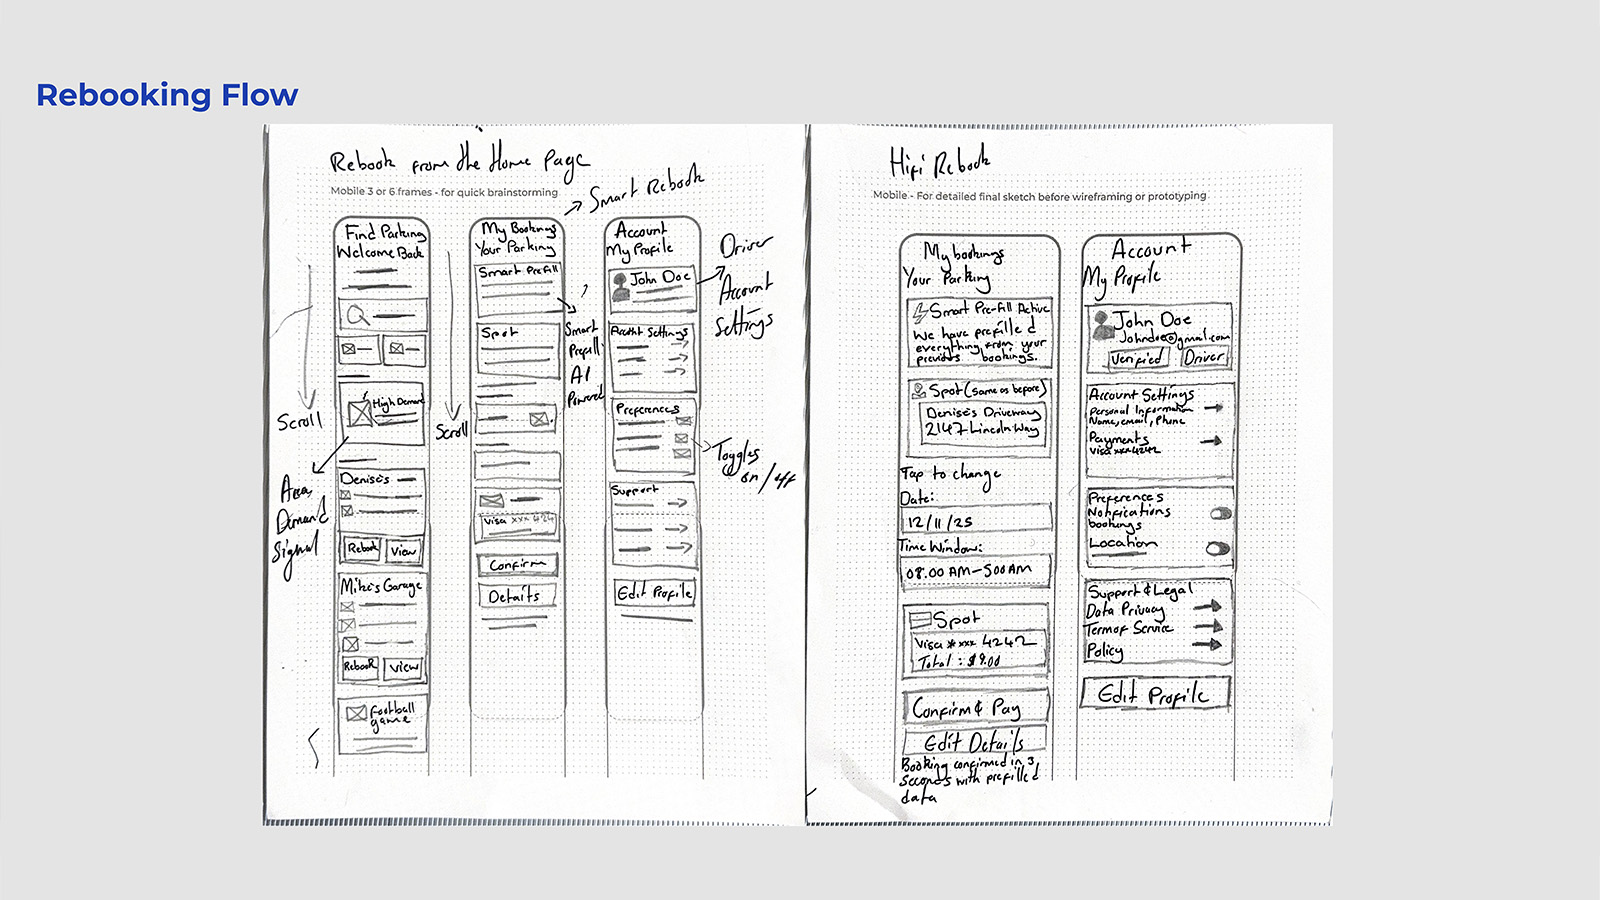 Rebooking Flow
Rebook from the Home Page
Mobile 3 or 6 frames - for quick brainstorming
Smart Rebook
Find Parking
Welcome Back
High Demand
Denise's
Rebook
View
Mike's Garage
Rebook
View
football
game
Scroll
Area
Demand
Signal
My Bookings
Your Parking
Smart Prefill
Spot
Visa xxx 424
Confirm
Details
Scroll
Smart
Prefill
AI
Powered
Account
My Profile
John Doe
Account Settings
Preferences
Support
Edit Profile
Driver
Account
Settings
Toggles
on/off
Hifi Rebook
Mobile - For detailed final sketch before wireframing or prototyping
My bookings
Your Parking
Smart Pre-fill Active
We have prefilled
everything from your
previous bookings.
Spot (same as before)
Denise's Driveway
2147 Lincoln Way
Tap to change
Date:
12/11/25
Time Window:
08.00 AM-5:00 AM
Spot
Visa *xxx 4242
Total: $9.00
Confirm & Pay
Edit Details
Booking confirmed in 3
seconds with prefilled
data
Account
My Profile
John Doe
Johndoe@gmail.com
Verified
Driver
Account Settings
Personal Information
Name, email, Phone
Payments
Visa xxx 4242
Preferences
Notifications
bookings
Location
Support & Legal
Data Privacy
Term of Service
Policy
Edit Profile